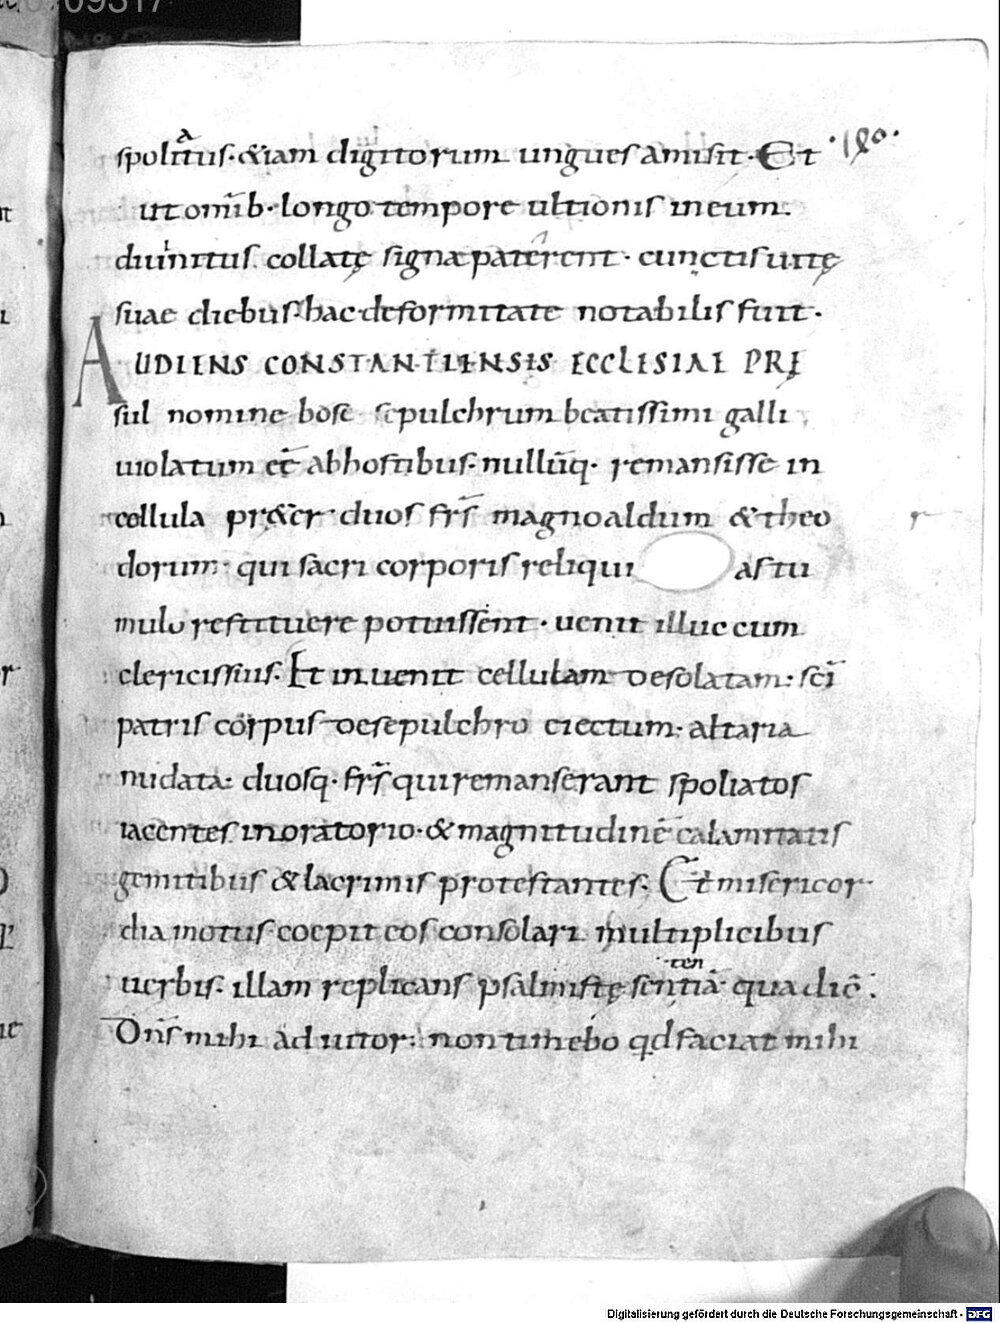 spoliatus · &iam digitorum ungues amisit · Et
·180·
ut omīb · longo tempore ultionis in eum.
diuinitus collatę signa paterent · cunctis uitę
suae diebus · hac deformitate notabilis fuit ·
AUDIENS CONSTANTIENSIS ECCLESIAE PRĘ
sul nomine bose sepulchrum beatissimi galli
uiolatum eē abhostibus · nullūq · remansisse in
cellula pr&er duos fr̄s magnoaldum & theo
dorum · qui sacri corporis reliqui as tu
mulo restituere potuissent · uenit illuc cum
clericis suis. Et inuenit cellulam desolatam : sc̄i
patris corpus de sepulchro eiectum · altaria
nudata : duosq · fr̄s qui remanserant spoliatos
iacentes inoratorio · & magnitudinē calamitatis
gemitibus & lacrimis protestantes. Et misericor
dia motus coepit eos consolari multiplicibus
uerbis · illam replicans psalmistę sententiā · qua dic̄ :
Dn̄s mihi adiutor : non timebo qd faciat mihi
Digitalisierung gefördert durch die Deutsche Forschungsgemeinschaft - DFG